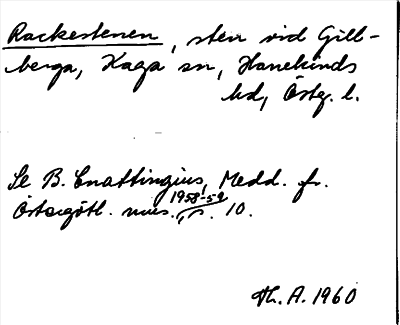 Rackestenen, sten vid Gill-
berga, Kaga sn, Hanekinds
hd, Östg. l.
Se B. Cnattingius, Medd. fr.
Östergötl. mus. 1958-59, s. 10.
Th. A. 1960